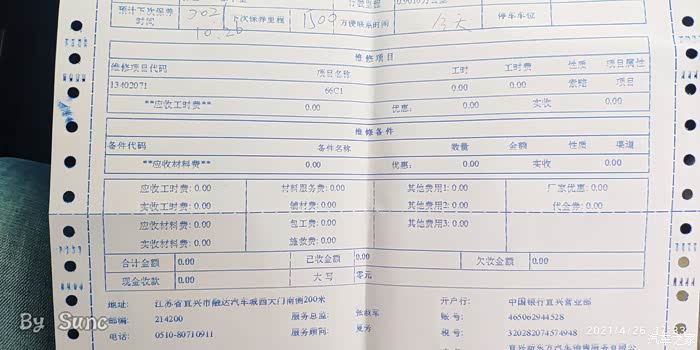 预计下次保养时间 202 10.26 下次保养里程 1500 方便联系时间 今天 停车车位
维修项目
维修项目代码 项目名称 工时 工时费 性质 项目属性
13402071 66C1 0.00 0.00 索赔 项目
**应收工时费** 0.00 优惠: 0.00 实收 0.00
维修备件
备件代码 备件名称 数量 金额 性质 渠道
**应收材料费** 0.00 优惠: 0.00 实收 0.00
应收工时费: 0.00 材料服务费: 0.00 其他费用1: 0.00 厂家优惠: 0.00
实收工时费: 0.00 辅材费: 0.00 其他费用2: 0.00 代金券: 0.00
应收材料费: 0.00 包工费: 0.00 其他费用3: 0.00
实收材料费: 0.00 施救费: 0.00
合计金额 0.00 已收金额 0.00 欠收金额 0.00
现金收款 0.00 大写 零元
地址: 江苏省宜兴市融达汽车城西大门南侧200米 开户行: 中国银行宜兴营业部
邮编: 214200 服务总监: 账号: 465062944528
电话: 0510-80710911 服务顾问: 夏芳 税号: 320282074574948
By Sunc
2021/4/26 12:33
汽车之家